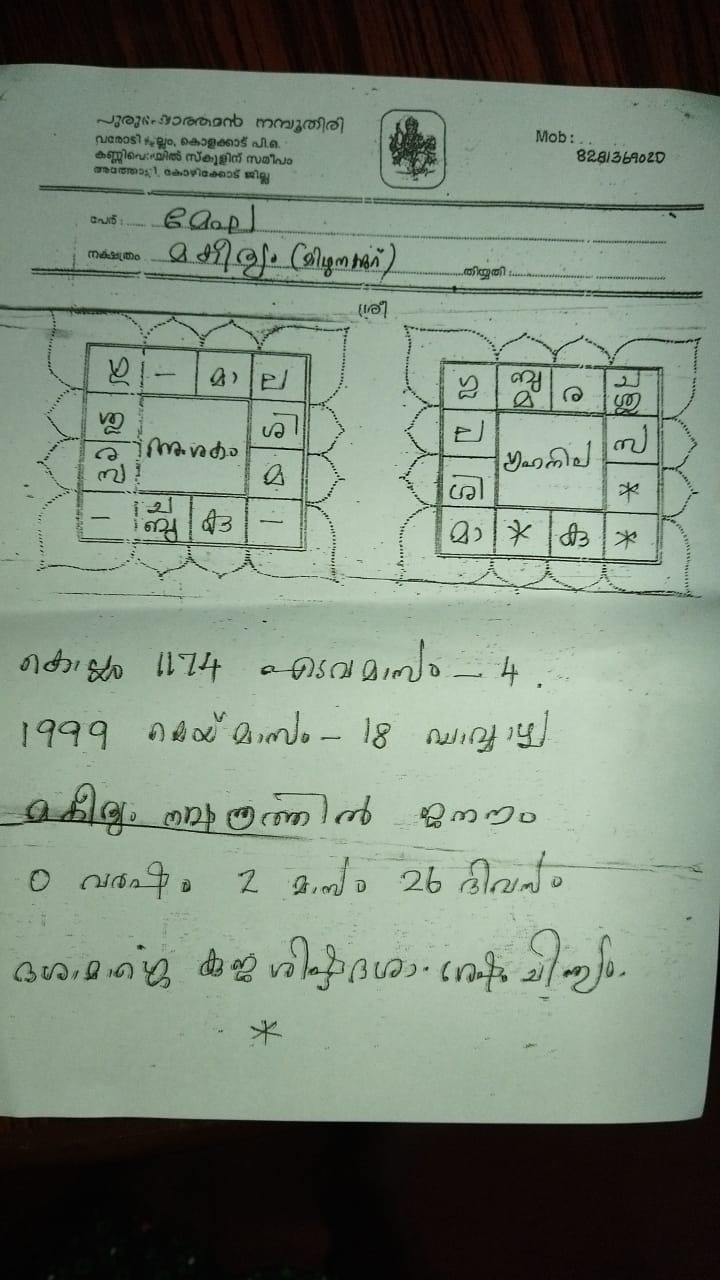 പുരുഷോത്തമൻ നമ്പൂതിരി
വരോടി ഇല്ലം, കൊളക്കാട് പി.ഒ.
സ്കൂളിന് സമീപം
അത്തോളി, കോഴിക്കോട് ജില്ല
Mob: . .
828136902D
പേര്:
നക്ഷത്രം മകീര്യം (മിഥുനക്കൂറ്) തിയ്യതി:
ശ്രീ
ഗു – മാ ല
ശു ശി
ര സ മ
അംശകം
– ച ബു കു –
ഗു ബു മ ര ച ശു
ല സ
ശി *
ഗ്രഹനില
മാ * കു *
കൊല്ലം 1174 എടവമാസം – 4 .
1999 മെയ് മാസം – 18 ചൊവ്വാഴ്ച
മകീര്യം നക്ഷത്രത്തിൽ ജനനം
0 വർഷം 2 മാസം 26 ദിവസം
കുജ ശിഷ്ടദശാ. ശേഷം ചിന്ത്യം.
*